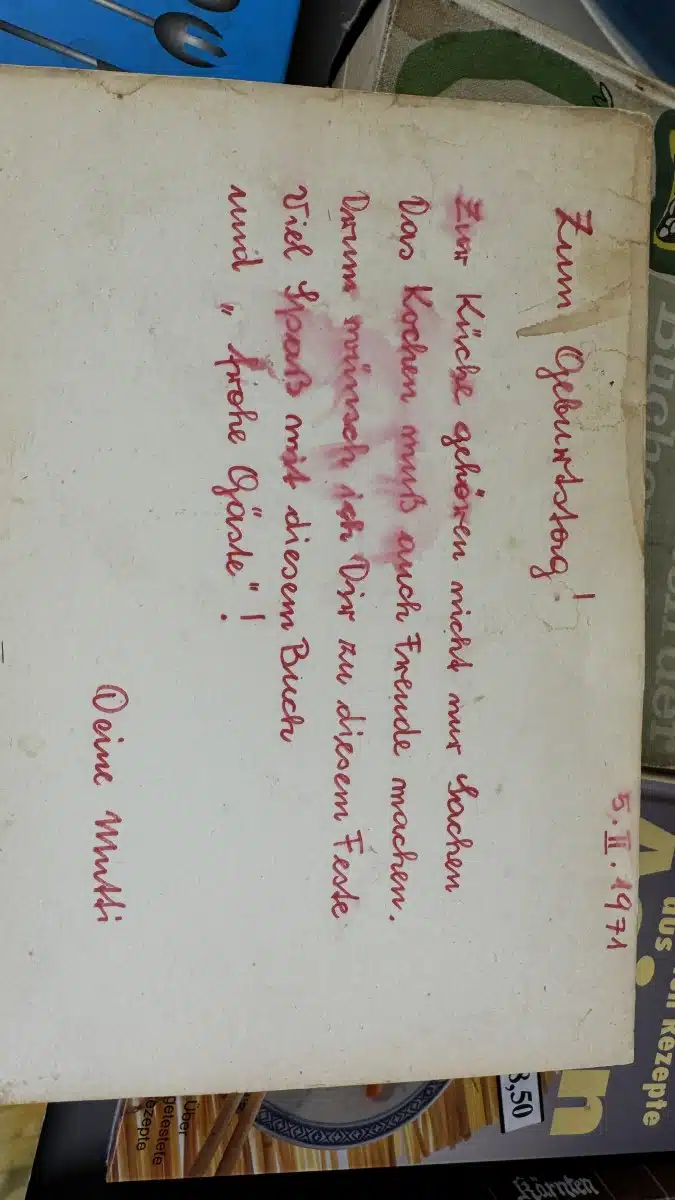 5. II. 1971
Zum Geburtstag!
Zur Küche gehören nicht nur Sachen
Das Kochen muß auch Freude machen.
Drum wünsch ich Dir zu diesem Feste
Viel Spaß mit diesem Buch
und „frohe Gäste"!
Deine Mutti
aus
Rezepte
3,50
Über
getestete
Rezepte
Kärnten